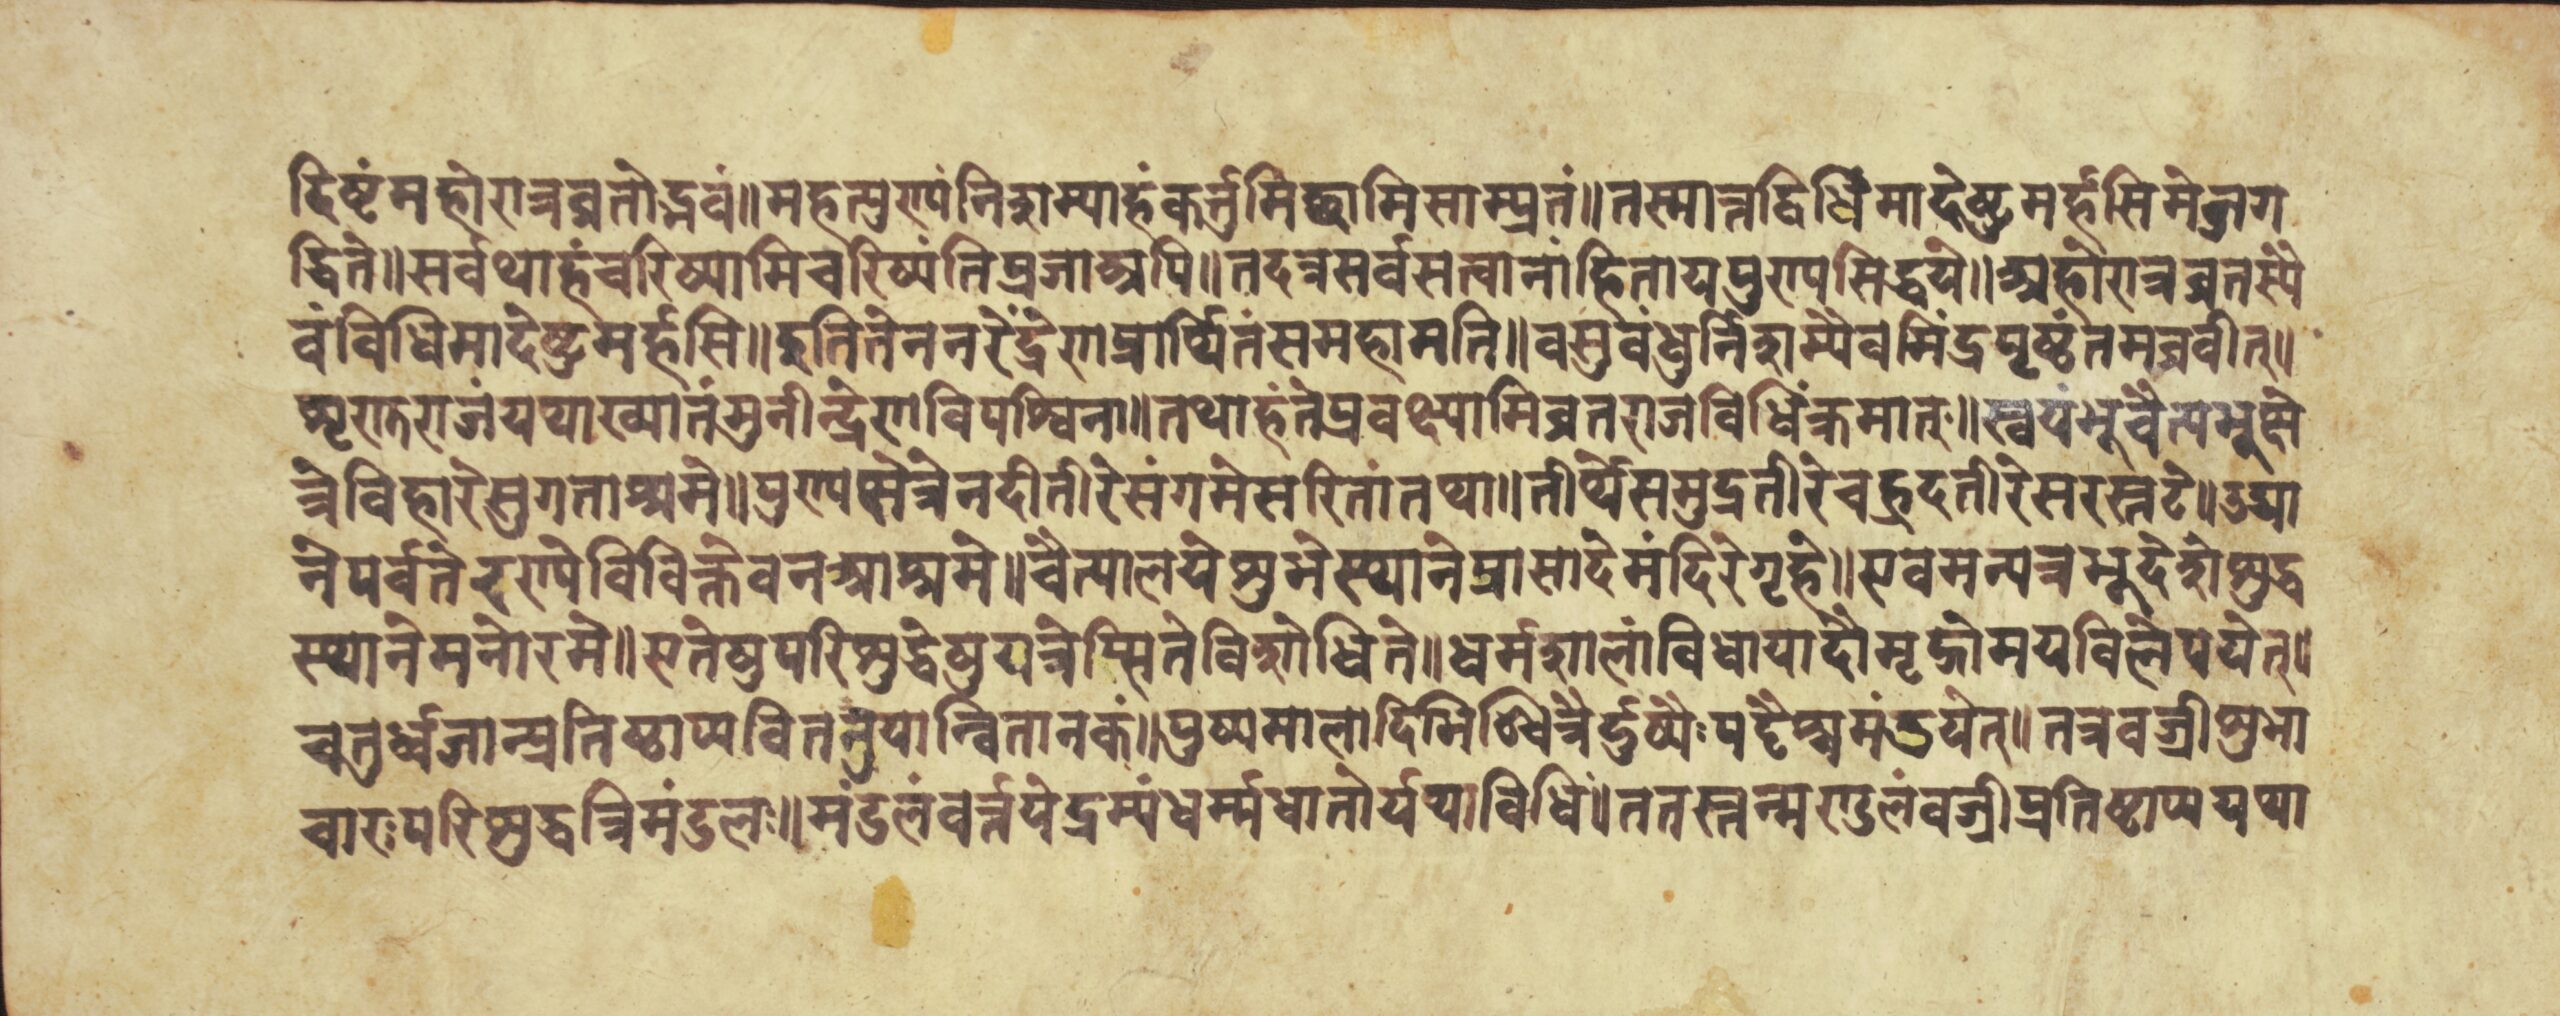 दिष्टंमहोरात्रव्रतोद्भवं॥महत्पुण्यंनिशम्याहंकर्त्तुमिच्छामिसाम्प्रतं॥तस्मात्तद्विधिंमादेष्टुमर्हसिमेजग
द्धिते॥सर्वथाहंचरिष्यामिचरिष्यंतिप्रजाअपि॥तदत्रसर्वसत्वानांहितायपुण्यसिद्धये॥अहोरात्रव्रतस्यै
वंविधिमादेष्टुमर्हसि॥इतितेननरेंद्रेणप्रार्थितंसमहामति॥वसुवंधुर्निशम्यैवमिंद्रपृष्ठंतमब्रवीत्॥
शृणुराजंयथाख्यातंमुनीन्द्रेणविपश्विना॥तथाहंतेप्रवक्ष्यामिव्रतराजविधिंक्रमात्॥स्वयंभूचैत्यभूक्षे
त्रेविहारेसुगताश्रमे॥पुण्यक्षेत्रेनदीतीरेसंगमेसरितांतथा॥तीर्थेसमुद्रतीरेचह्रदतीरेसरस्तटे॥उद्या
नेपर्वतेरण्येविविक्तेवनआश्रमे॥चैत्यालयेशुभेस्थानेप्रासादेमंदिरेगृहे॥एवमन्यत्रभूदेशेशुद्ध
स्थानेमनोरमे॥एतेषुपरिशुद्धेषुयत्रेप्सितेविशोधिते॥धर्मशालांविधायादौमृद्गोमयविलेपयेत्॥
चतुर्ध्वजान्प्रतिष्ठाप्यवितनुयान्वितानकं॥पुष्पमालादिभिश्चित्रैर्दुष्यैःपट्टैश्चमंडयेत्॥तत्रवज्रीशुभा
चारःपरिशुद्धत्रिमंडलः॥मंडलंवर्त्तयेद्रम्यंधर्म्मधातोर्यथाविधिं॥ततस्तन्मण्डलंवज्रीप्रतिष्ठाप्ययथा